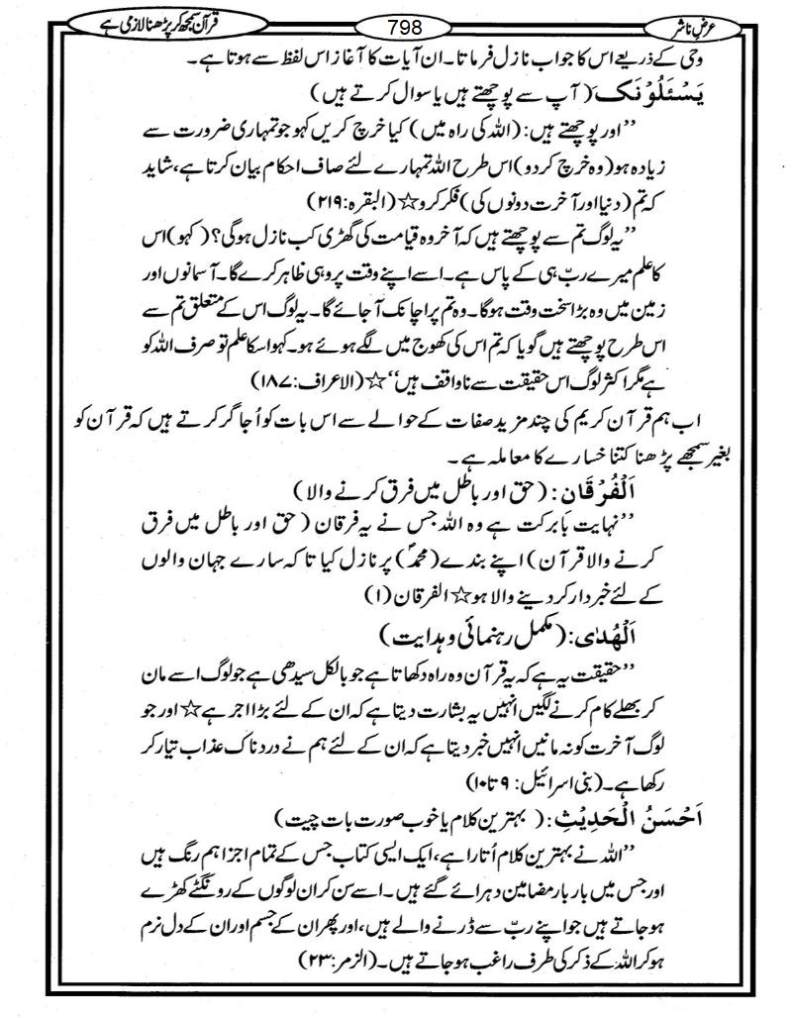 عرضِ ناشر 798 قرآن سمجھ کر پڑھنا لازمی ہے
وحی کے ذریعے اس کا جواب نازل فرماتا۔ ان آیات کا آغاز اس لفظ سے ہوتا ہے۔
یَسْئَلُوْنَکَ (آپ سے پوچھتے ہیں یا سوال کرتے ہیں)
”اور پوچھتے ہیں: (اللہ کی راہ میں) کیا خرچ کریں کہو جو تمہاری ضرورت سے
زیادہ ہو (وہ خرچ کر دو) اس طرح اللہ تمہارے لئے صاف احکام بیان کرتا ہے، شاید
کہ تم (دنیا اور آخرت دونوں کی) فکر کرو☆ (البقرہ:۲۱۹)
”یہ لوگ تم سے پوچھتے ہیں کہ آخر وہ قیامت کی گھڑی کب نازل ہوگی؟ (کہو) اس
کا علم میرے ربّ ہی کے پاس ہے۔ اسے اپنے وقت پر وہی ظاہر کرے گا۔ آسمانوں اور
زمین میں وہ بڑا سخت وقت ہوگا۔ وہ تم پر اچانک آجائے گا۔ یہ لوگ اس کے متعلق تم سے
اس طرح پوچھتے ہیں گویا کہ تم اس کی کھوج میں لگے ہوئے ہو۔ کہو اسکا علم تو صرف اللہ کو
ہے مگر اکثر لوگ اس حقیقت سے ناواقف ہیں“☆ (الاعراف:۱۸۷)
اب ہم قرآن کریم کی چند مزید صفات کے حوالے سے اس بات کو اُجاگر کرتے ہیں کہ قرآن کو
بغیر سمجھے پڑھنا کتنا خسارے کا معاملہ ہے۔
اَلْفُرْقَان: (حق اور باطل میں فرق کرنے والا)
”نہایت بابرکت ہے وہ اللہ جس نے یہ فرقان (حق اور باطل میں فرق
کرنے والا قرآن) اپنے بندے (محمدؐ) پر نازل کیا تاکہ سارے جہان والوں
کے لئے خبردار کر دینے والا ہو☆ الفرقان (۱)
اَلْهُدٰى: (مکمل رہنمائی و ہدایت)
”حقیقت یہ ہے کہ یہ قرآن وہ راہ دکھاتا ہے جو بالکل سیدھی ہے جو لوگ اسے مان
کر بھلے کام کرنے لگیں انہیں یہ بشارت دیتا ہے کہ ان کے لئے بڑا اجر ہے☆ اور جو
لوگ آخرت کو نہ مانیں انہیں خبر دیتا ہے کہ ان کے لئے ہم نے دردناک عذاب تیار کر
رکھا ہے۔ (بنی اسرائیل: ۹ تا ۱۰)
اَحْسَنُ الْحَدِیْثِ: (بہترین کلام یا خوب صورت بات چیت)
”اللہ نے بہترین کلام اُتارا ہے، ایک ایسی کتاب جس کے تمام اجزا ہم رنگ ہیں
اور جس میں بار بار مضامین دہرائے گئے ہیں۔ اسے سن کر ان لوگوں کے رونگٹے کھڑے
ہو جاتے ہیں جو اپنے ربّ سے ڈرنے والے ہیں، اور پھر ان کے جسم اور ان کے دل نرم
ہو کر اللہ کے ذکر کی طرف راغب ہو جاتے ہیں۔ (الزمر:۲۳)